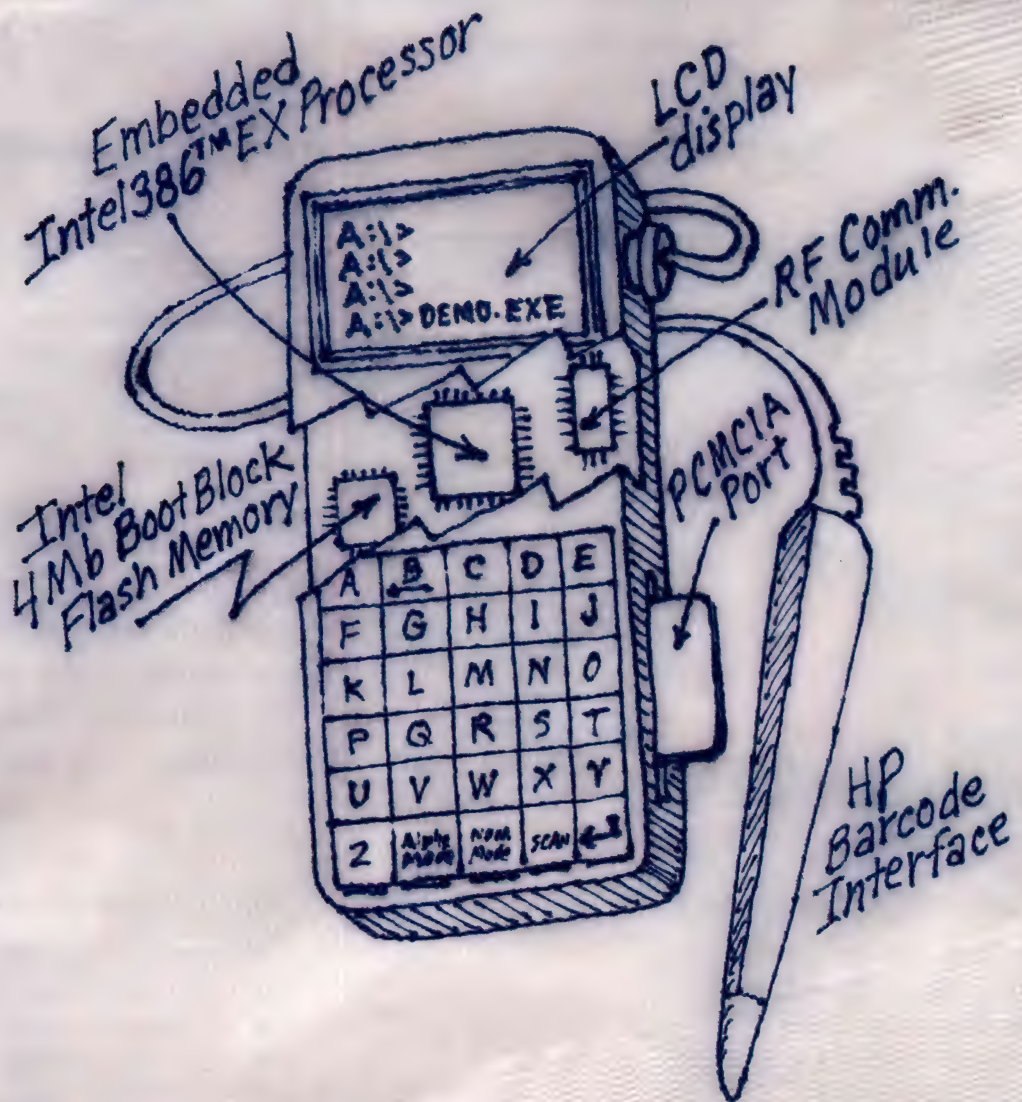 Embedded
Intel386™EX Processor
LCD
display
A:\>
A:\>
A:\>
A:\>DEMO.EXE
RF Comm.
Module
Intel
4Mb Boot Block
Flash Memory
PCMCIA
Port
A B C D E
F G H I J
K L M N O
P Q R S T
U V W X Y
Z Alpha Mode Num Mode SCAN
HP
Barcode
Interface